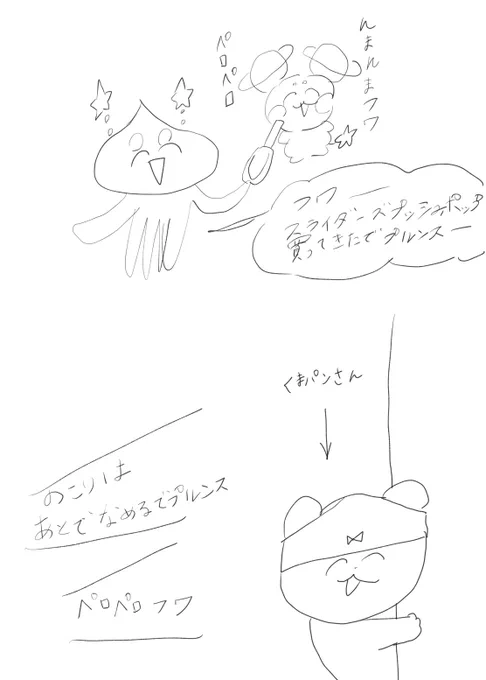 んまんまフワ
ペロペロ
フワー
スライダーズプッシュポップ
買ってきたでプルンスー
くまパンさん
のこりは
あとでなめるでプルンス
ペロペロフワ